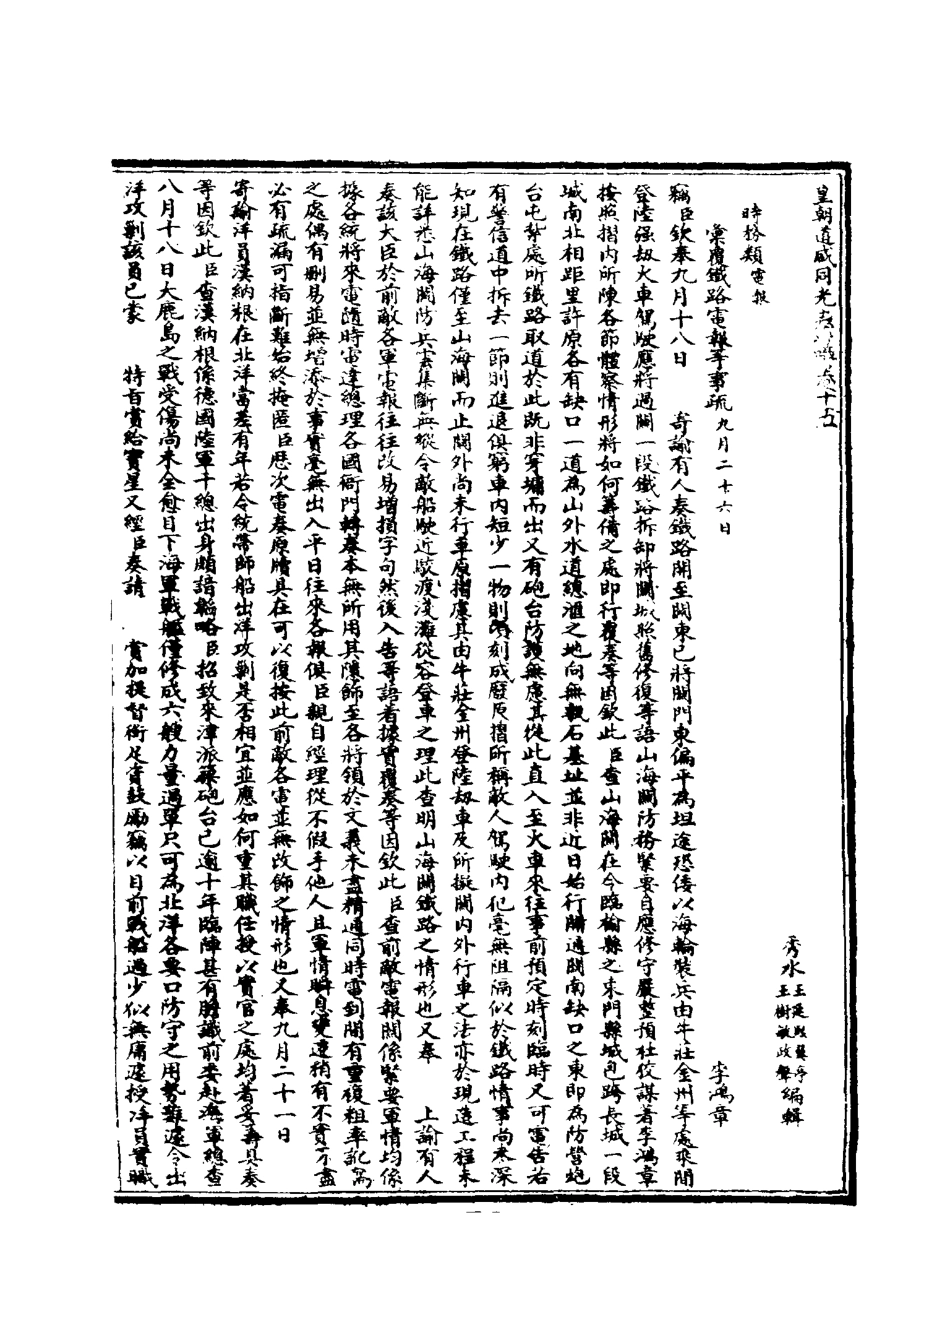 皇朝道咸同光奏議卷六十五
秀水王延熙蘇亭王樹敏政聲編輯
時務類 電報
彙覆鐵路電報等事疏九月二十六日 李鴻章
竊臣欽奉九月十八日 寄諭有人奏鐵路開至關東已將關門東偏平為坦途恐倭以海輪裝兵由牛莊金州等處乘間
登陸強劫火車駕駛應將過關一段鐵路拆卸將關城照舊修復等語山海關防務緊要自應修守嚴整預杜狡謀著李鴻章
按照摺內所陳各節體察情形將如何籌備之處即行覆奏等因欽此臣查山海關在今臨榆縣之東門縣城包跨長城一段
城南北相距里許原各有缺口一道為山外水道總滙之地向無觀石基址並非近日始行闢通關南缺口之東即為防營砲
台屯紮處所鐵路取道於此既非穿墉而出又有砲台防護無慮其從此直入至火車來往事前預定時刻臨時又可電告若
有警信道中拆去一節則進退俱窮車內短少一物則頃刻成廢原摺所稱敵人駕駛內犯毫無阻隔似於鐵路情事尚未深
知現在鐵路僅至山海關而止關外尚未行車原摺慮其由牛莊金州登陸劫車及所擬關內外行車之法亦於現造工程未
能詳悉山海關防兵雲集斷無縱令敵船駛近駁渡淺灘從容登車之理此查明山海關鐵路之情形也又奉 上諭有人
奏該大臣於前敵各軍電報往往改易增損字句然後入告等語著據實覆奏等因欽此臣查前敵電報關係緊要軍情均係
據各統將來電隨時電達總理各國衙門轉奏本無所用其隱飾至各將領於文義未盡精通同時電到間有重複粗率訛寫
之處偶有刪易並無增添於事實毫無出入平日往來各報俱臣親自經理從不假手他人且軍情瞬息變遷稍有不實不盡
必有疏漏可指斷難始終掩匿臣歷次電奏原牘具在可以復按此前敵各電並無改飾之情形也又奉九月二十一日
寄諭洋員漢納根在北洋當差有年若令統帶師船出洋攻剿是否相宜並應如何重其職任授以實官之處均著妥籌具奏
等因欽此臣查漢納根係德國陸軍千總出身頗諳韜略臣招致來津派築砲台已逾十年臨陣甚有膽識前委赴海軍總查
八月十八日大鹿島之戰受傷尚未全愈目下海軍戰艦僅修成六艘力量過單只可為北洋各要口防守之用勢難遽令出
洋攻剿該員已蒙 特旨賞給寶星又經臣奏請 賞加提督銜足資鼓勵竊以目前戰船過少似無庸遽授洋員實職